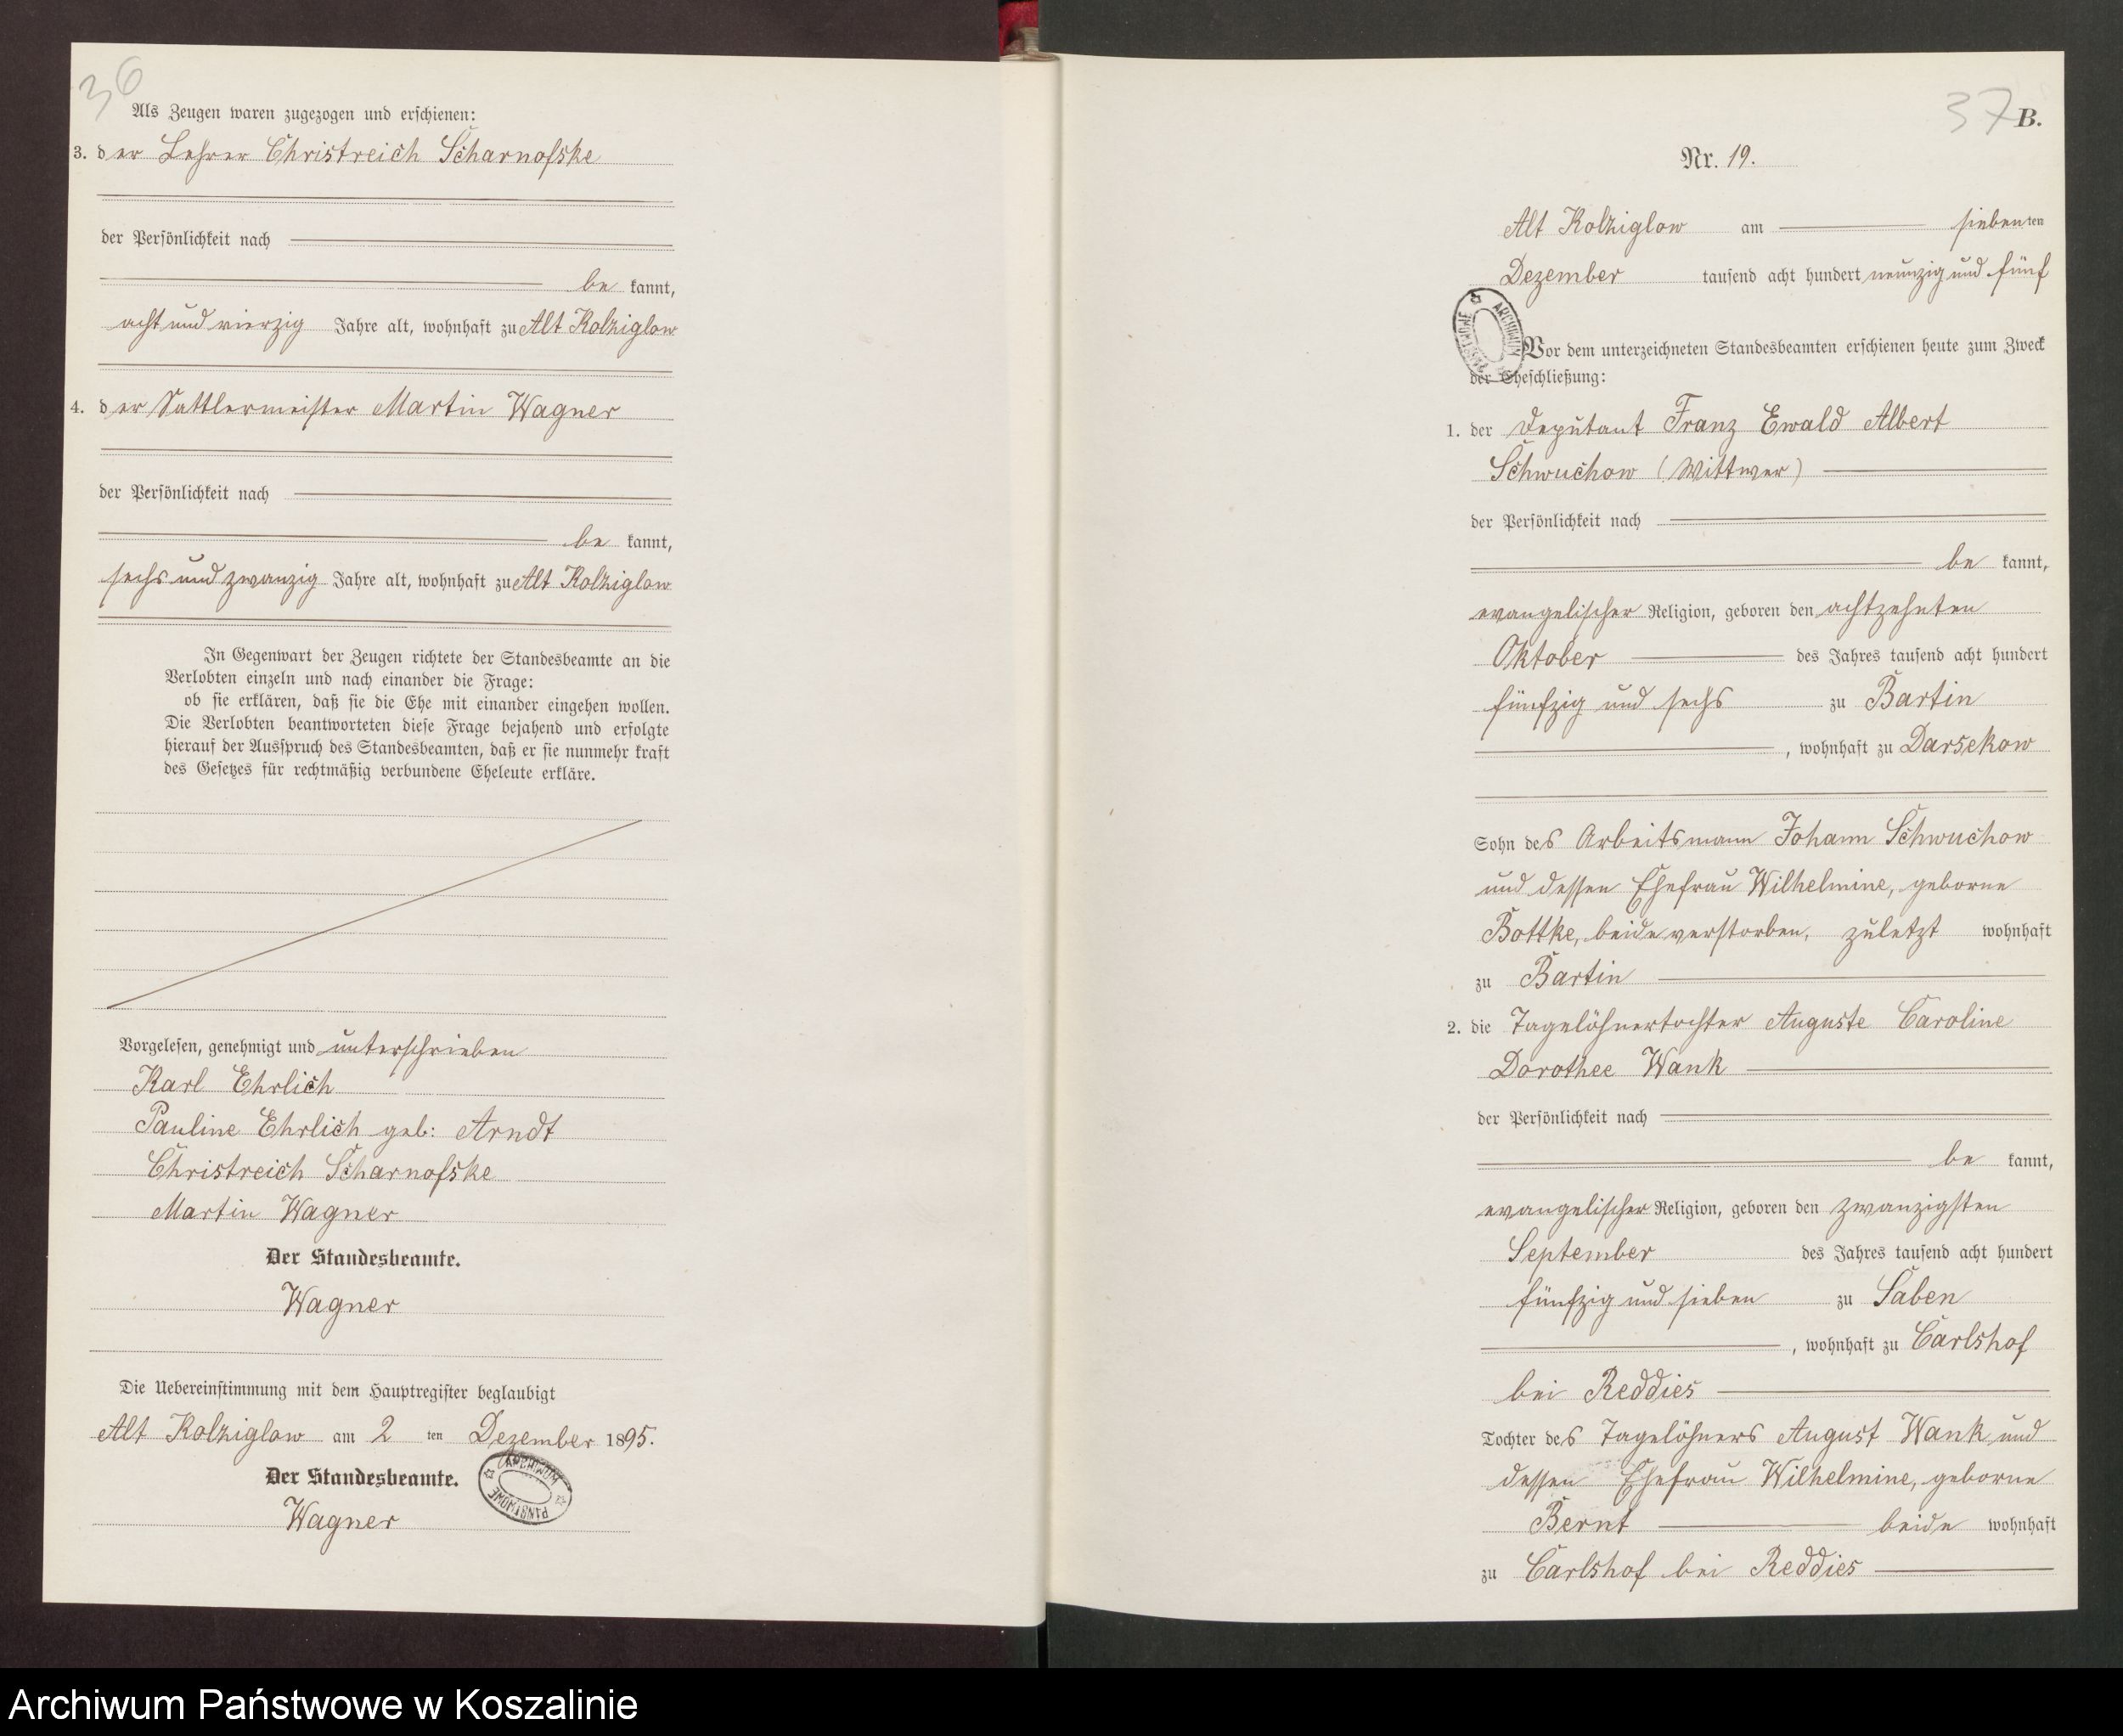 36
Als Zeugen waren zugezogen und erschienen:
3. der Lehrer Christreich Scharnofske
der Persönlichkeit nach
be kannt,
acht und vierzig Jahre alt, wohnhaft zu Alt Kolziglow
4. der Sattlermeister Martin Wagner
der Persönlichkeit nach
be kannt,
sechs und zwanzig Jahre alt, wohnhaft zu Alt Kolziglow
In Gegenwart der Zeugen richtete der Standesbeamte an die
Verlobten einzeln und nach einander die Frage:
ob sie erklären, daß sie die Ehe mit einander eingehen wollen.
Die Verlobten beantworteten diese Frage bejahend und erfolgte
hierauf der Ausspruch des Standesbeamten, daß er sie nunmehr kraft
des Gesetzes für rechtmäßig verbundene Eheleute erkläre.
Vorgelesen, genehmigt und unterschrieben
Karl Ehrlich
Pauline Ehrlich geb: Arndt
Christreich Scharnofske
Martin Wagner
Der Standesbeamte.
Wagner
Die Uebereinstimmung mit dem Hauptregister beglaubigt
Alt Kolziglow am 2 ten Dezember 1895.
Der Standesbeamte.
ARCHIWUM PAŃSTWOWE
Wagner
37 B.
Nr. 19.
Alt Kolziglow am siebenten
Dezember tausend acht hundert neunzig und fünf
ARCHIWUM PAŃSTWOWE
Vor dem unterzeichneten Standesbeamten erschienen heute zum Zweck
der Eheschließung:
1. der Deputant Franz Ewald Albert
Schwuchow (Wittwer)
der Persönlichkeit nach
be kannt,
evangelischer Religion, geboren den achtzehnten
Oktober des Jahres tausend acht hundert
fünfzig und sechs zu Bartin
, wohnhaft zu Darsekow
Sohn des Arbeitsmann Johann Schwuchow
und dessen Ehefrau Wilhelmine, geborne
Bottke, beide verstorben, zuletzt wohnhaft
zu Bartin
2. die Tagelöhnertochter Auguste Caroline
Dorothee Wank
der Persönlichkeit nach
be kannt,
evangelischer Religion, geboren den zwanzigsten
September des Jahres tausend acht hundert
fünfzig und sieben zu Saben
, wohnhaft zu Carlshof
bei Reddies
Tochter des Tagelöhners August Wank und
dessen Ehefrau Wilhelmine, geborne
Bernt beide wohnhaft
zu Carlshof bei Reddies
Archiwum Państwowe w Koszalinie